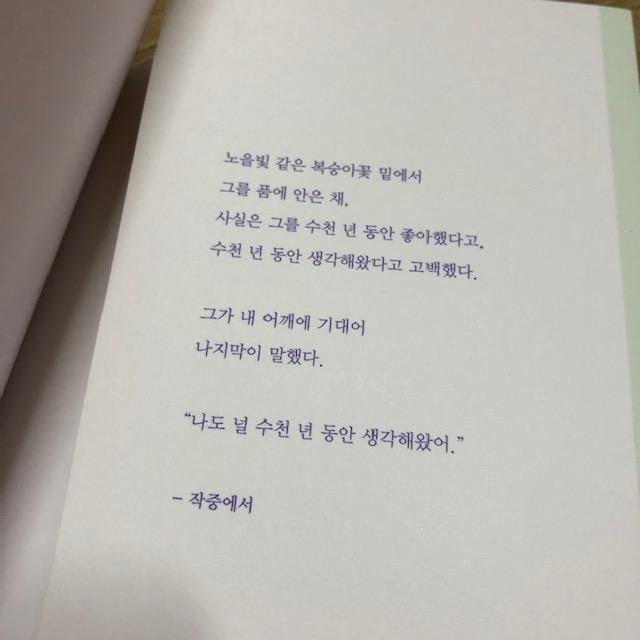 노을빛 같은 복숭아꽃 밑에서
그를 품에 안은 채,
사실은 그를 수천 년 동안 좋아했다고,
수천 년 동안 생각해왔다고 고백했다.
그가 내 어깨에 기대어
나지막이 말했다.
“나도 널 수천 년 동안 생각해왔어.”
– 작중에서